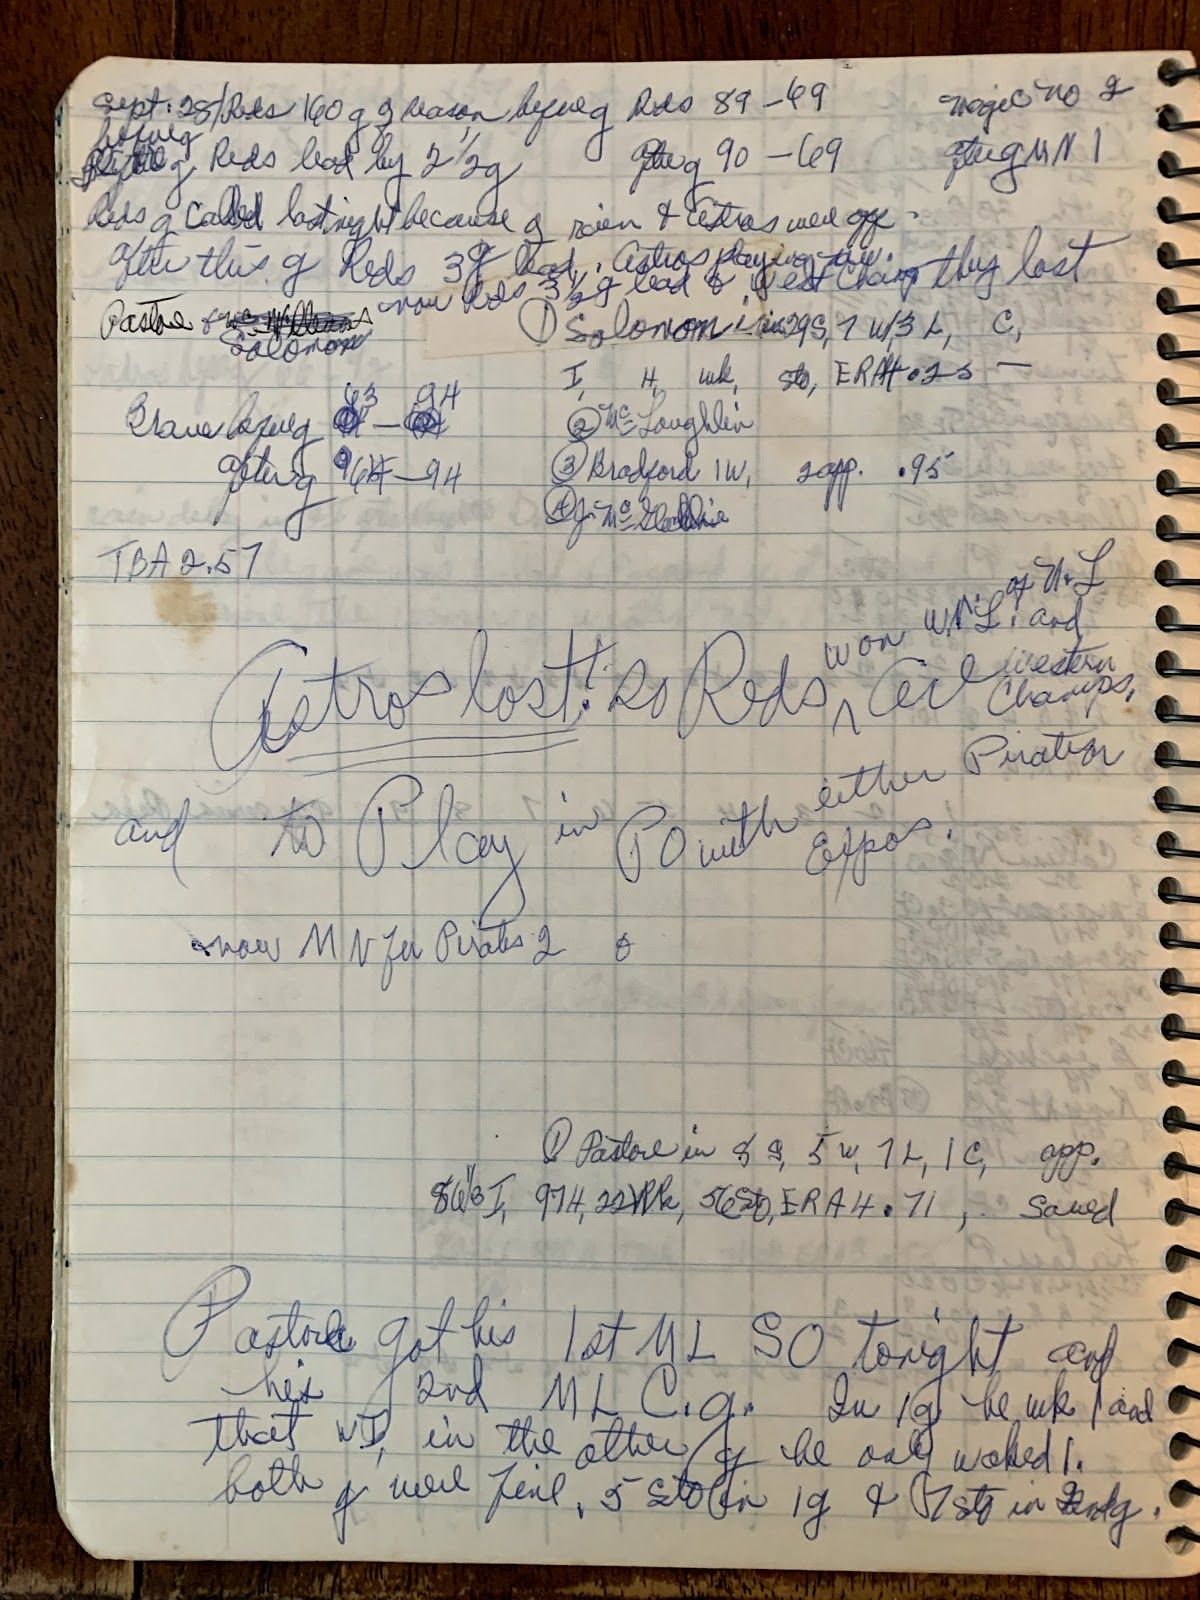 Sept. 28/Reds 160 g of season, before g Reds 89-69 Magic No 2
before
g Reds lead by 2 1/2 g after g 90-69 after g MN 1
Reds g called last night because of rain & Astros were off.
After this g Reds 3 g lead, Astros playing now.
now Reds 3 1/2 g lead & West Champ they lost
Pastore &
Solomon
① Solomon in 29S, 7W, 3L, C,
I, H, wk, sto, ERA 4.25 —
63 94
Brave before g —
② McLaughlin
after g 64-94 ③ Bradford 1W, 2 app. .95
④ J. Mc
TBA 2.57
Astros lost! so Reds won W.N.L. of N.L and
are Western
Champs,
and to Play in PO with either Pirates or
Expos.
now M N for Pirates 2 &
① Pastore in 8 S, 5 W, 7 L, 1 C, app.
86 1/3 I, 97H, 22 Wk, 56 Sto, ERA 4.71, saved
Pastore got his 1st ML SO tonight and
his 2nd ML C.g. In 1g he wk 1 and
that WI, in the other g he only walked 1.
both g were fine, 5 sto in 1g & 7 sto in 2nd g.